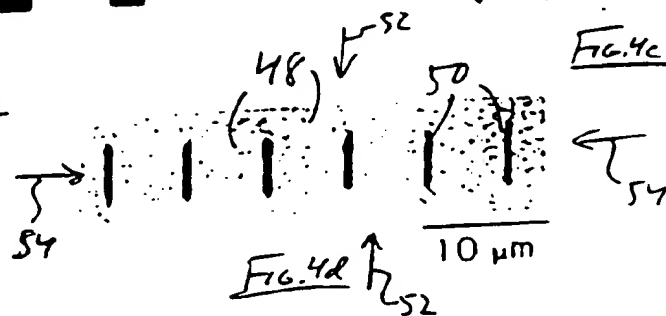 52
FIG.4c
48 50
54 54
10 μm
FIG.4d 52